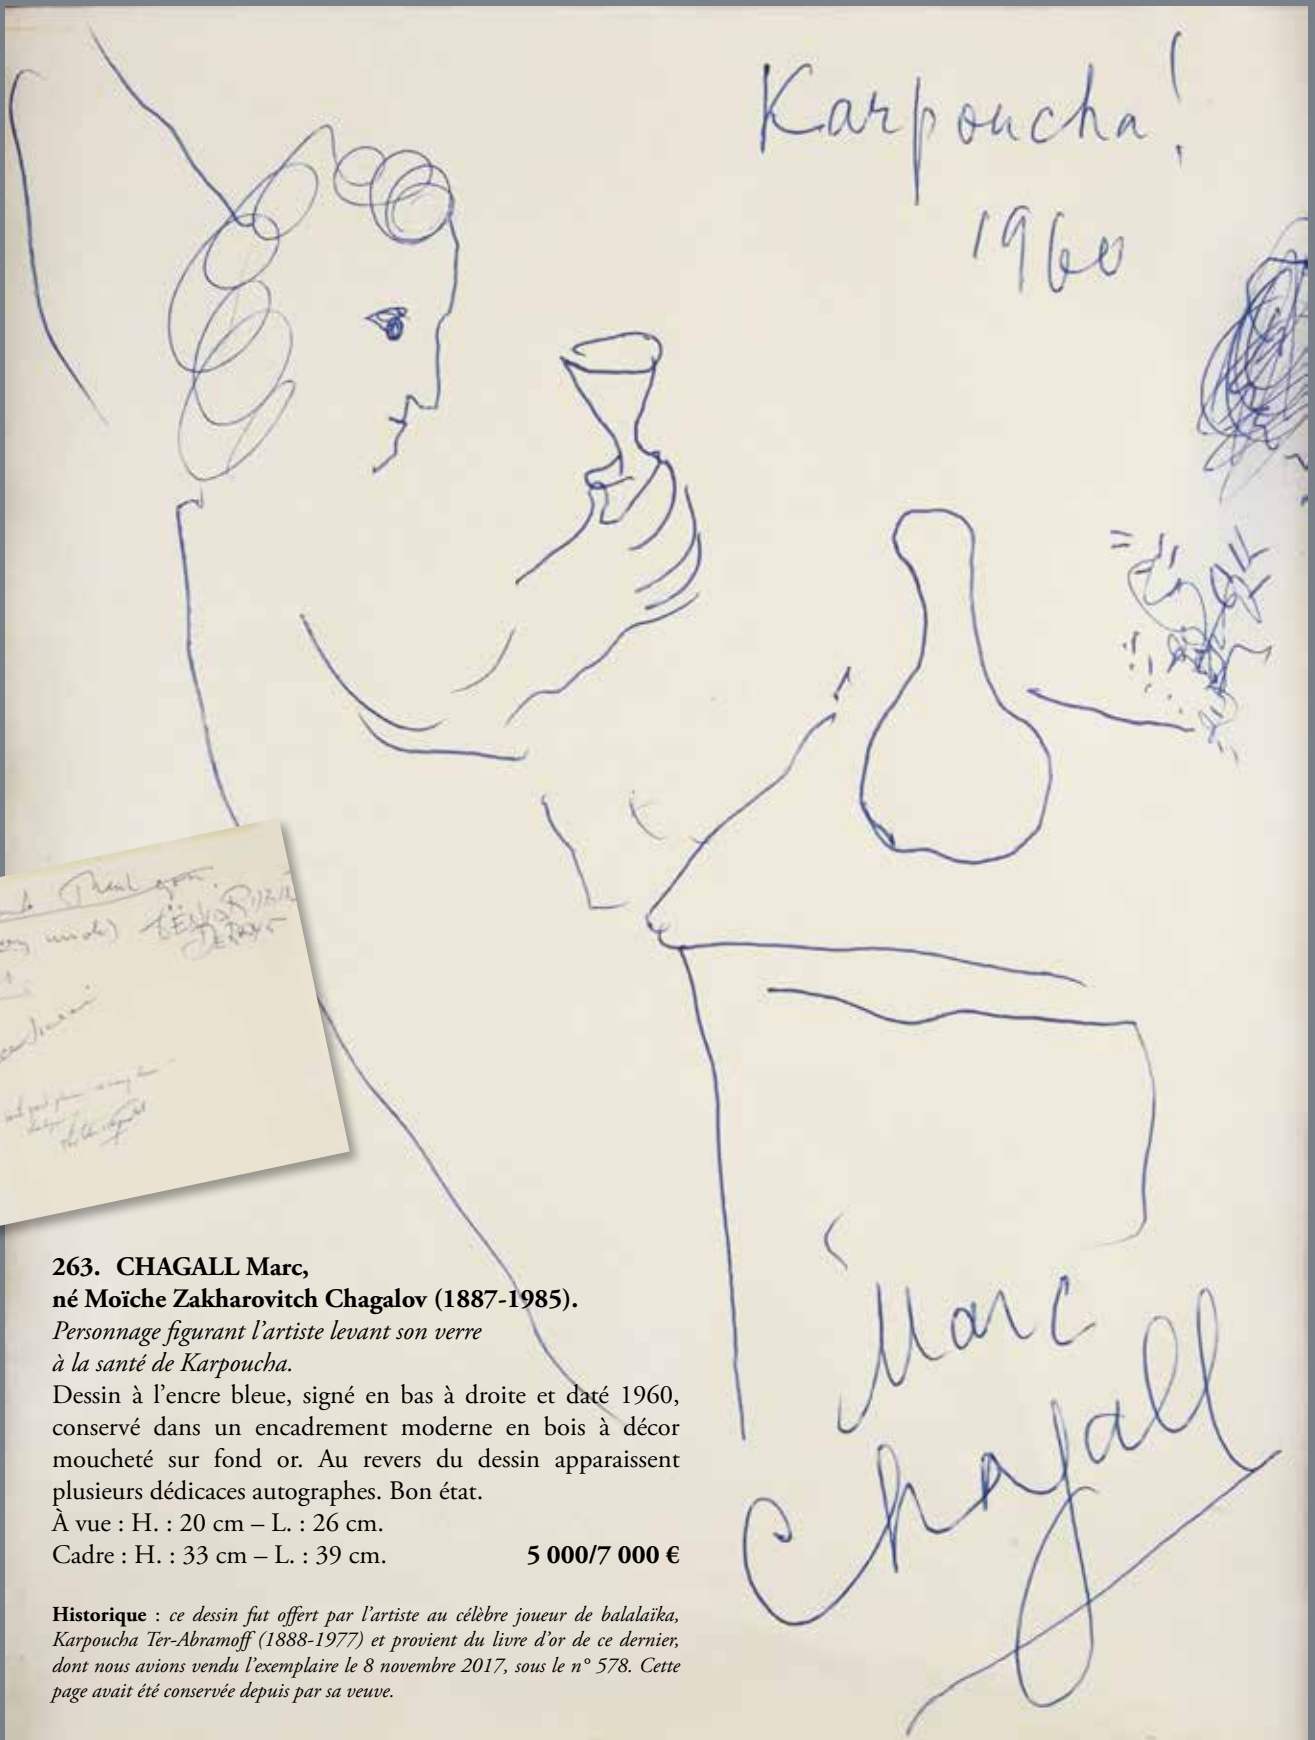 Karpoucha!
1960
DERAIN
Marc
Chagall
263. CHAGALL Marc,
né Moïche Zakharovitch Chagalov (1887-1985).
Personnage figurant l'artiste levant son verre
à la santé de Karpoucha.
Dessin à l'encre bleue, signé en bas à droite et daté 1960,
conservé dans un encadrement moderne en bois à décor
moucheté sur fond or. Au revers du dessin apparaissent
plusieurs dédicaces autographes. Bon état.
À vue : H. : 20 cm – L. : 26 cm.
Cadre : H. : 33 cm – L. : 39 cm. 5 000/7 000 €
Historique : ce dessin fut offert par l'artiste au célèbre joueur de balalaïka,
Karpoucha Ter-Abramoff (1888-1977) et provient du livre d'or de ce dernier,
dont nous avions vendu l'exemplaire le 8 novembre 2017, sous le n° 578. Cette
page avait été conservée depuis par sa veuve.